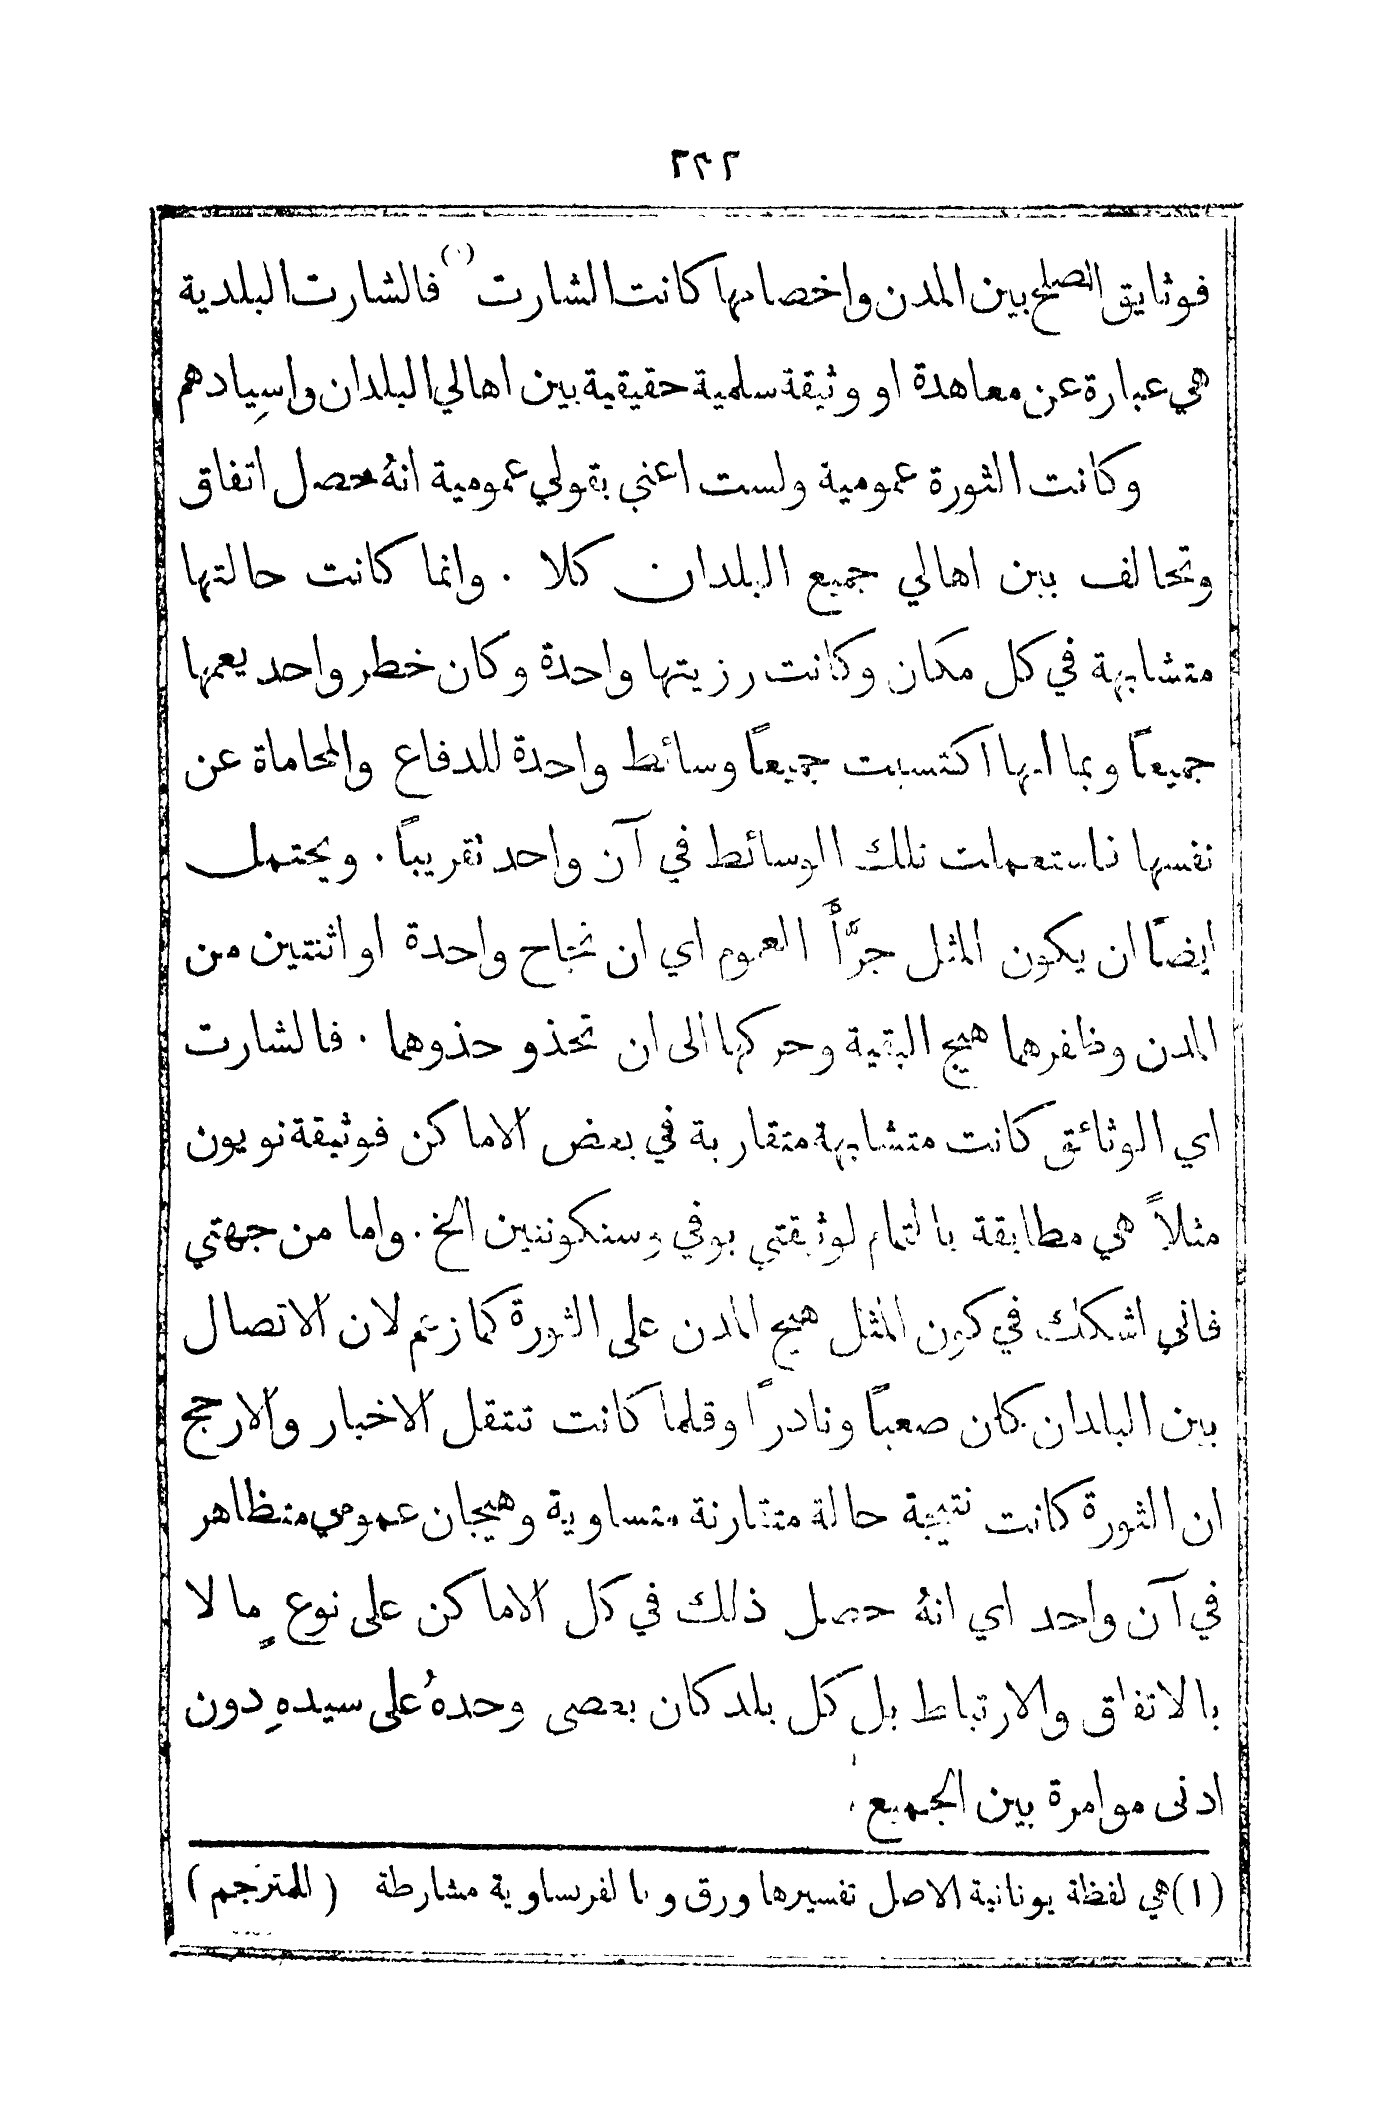 ٢٢٢
فوثايق الصلح بين المدن واخصامها كانت الشارت (١) فالشارت البلدية
هي عبارة عن معاهدة او وثيقة سلمية حقيقية بين اهالي البلدان واسيادهم
وكانت الثورة عمومية ولست اعني بقولي عمومية انهُ حصل اتفاق
وتحالف بين اهالي جميع البلدان كلا . وانما كانت حالتها
متشابهة في كل مكان وكانت رزيتها واحدة وكان خطر واحد يعمها
جميعاً وبما انها اكتسبت جميعاً وسائط واحدة للدفاع والمحاماة عن
نفسها فاستعملت تلك الوسائط في آن واحد تقريباً . ويحتمل
ايضاً ان يكون المثل جرَّأَ العموم اي ان نجاح واحدة او اثنتين من
المدن وظفرهما هيج البقية وحركها الى ان تحذو حذوهما . فالشارت
اي الوثائق كانت متشابهة متقاربة في بعض الاماكن فوثيقة نويون
مثلاً هي مطابقة بالتمام لوثيقتي بوفي وسنكوننين الخ . واما من جهتي
فاني اشكك في كون المثل هيج المدن على الثورة كما زعم لان الاتصال
بين البلدان كان صعباً ونادراً وقلما كانت تنتقل الاخبار والارجح
ان الثورة كانت نتيجة حالة متقارنة متساوية وهيجان عمومي متظاهر
في آن واحد اي انهُ حصل ذلك في كل الاماكن على نوعٍ ما لا
بالاتفاق والارتباط بل كل بلد كان يعصى وحدهُ على سيدهِ دون
ادنى موامرة بين الجميع .
(١) هي لفظة يونانية الاصل تفسيرها ورق وبالفرنساوية مشارطة ( المترجم )